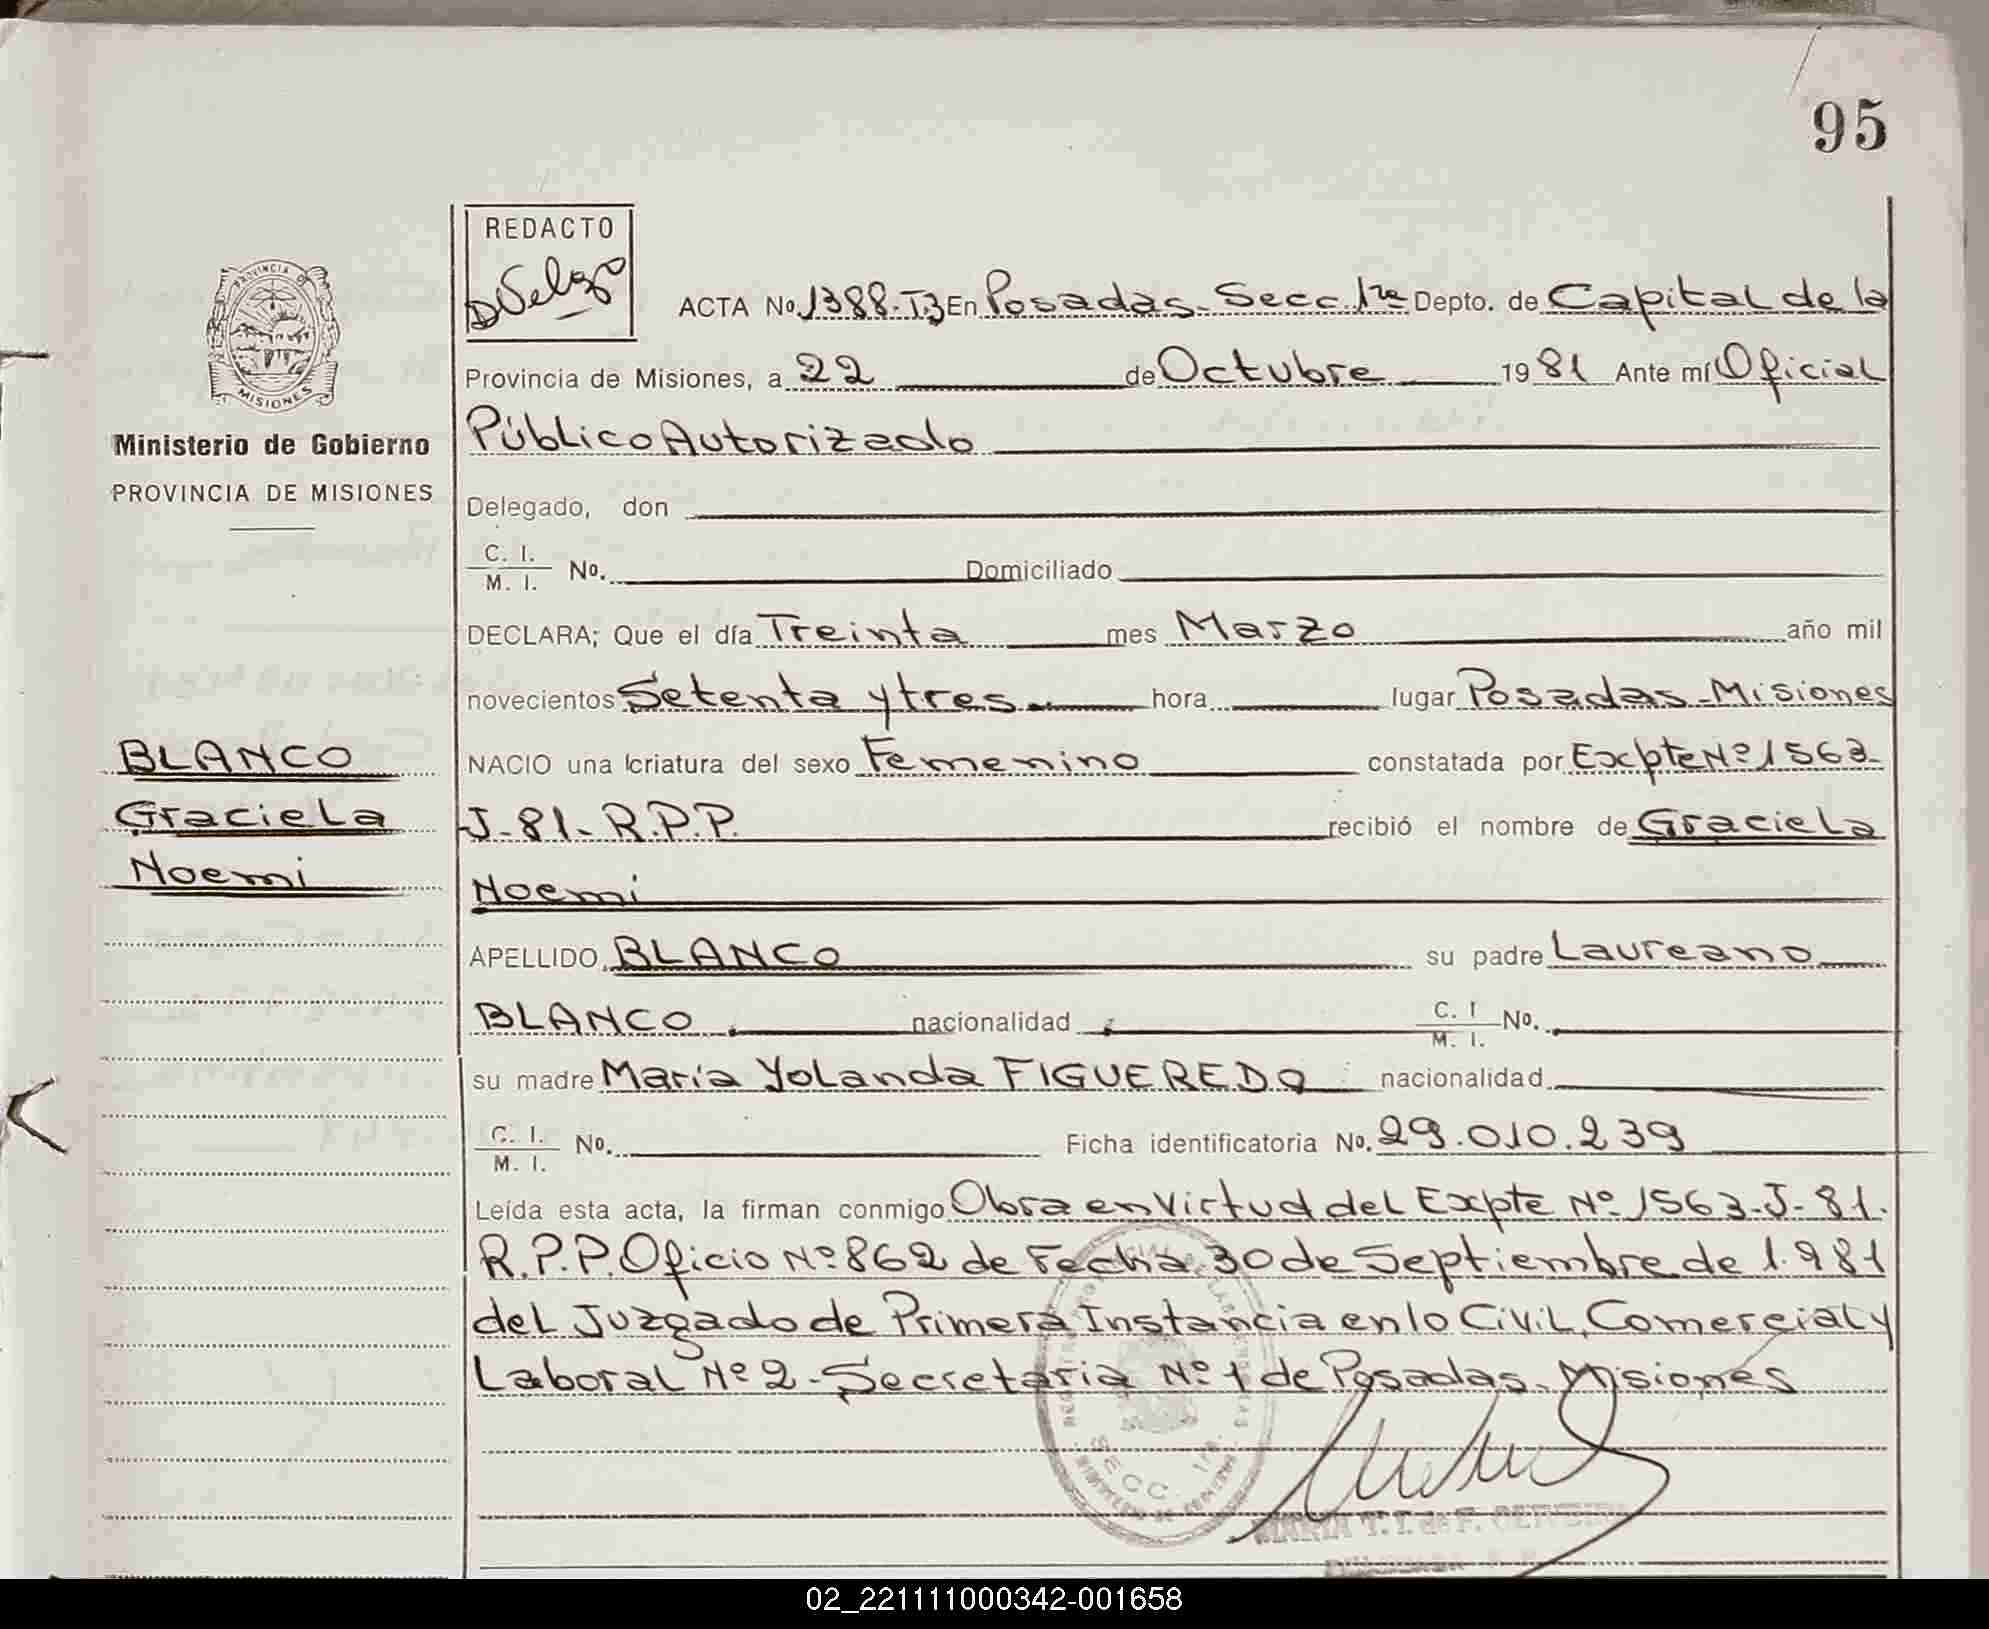 95
REDACTO
ACTA No. 1388-T.3 En Posadas-Secc 1ra Depto. de Capital de la
PROVINCIA DE
MISIONES
Provincia de Misiones, a 22 de Octubre 1981 Ante mí Oficial
Ministerio de Gobierno
Público Autorizado
PROVINCIA DE MISIONES
Delegado, don
C. I.
M. I. No. Domiciliado
DECLARA; Que el día Treinta mes Marzo año mil
novecientos Setenta y tres hora lugar Posadas-Misiones
BLANCO
Graciela
Noemi
NACIO una criatura del sexo Femenino constatada por Excpte Nº 1563-
J-81-R.P.P. recibió el nombre de Graciela
Noemi
APELLIDO BLANCO su padre Laureano
BLANCO nacionalidad C. I M. I. No.
su madre María Yolanda FIGUEREDO nacionalidad
C. I.
M. I. No. Ficha identificatoria No. 29.010.239
Leída esta acta, la firman conmigo Obra en virtud del Excpte Nº 1563-J-81.
R.P.P. Oficio Nº 862 de Fecha 30 de Septiembre de 1.981
del Juzgado de Primera Instancia en lo Civil, Comercial y
Laboral Nº 2-Secretaria Nº 1 de Posadas-Misiones
SECC. 1ra.
MARIA T. I. de F.
02_221111000342-001658